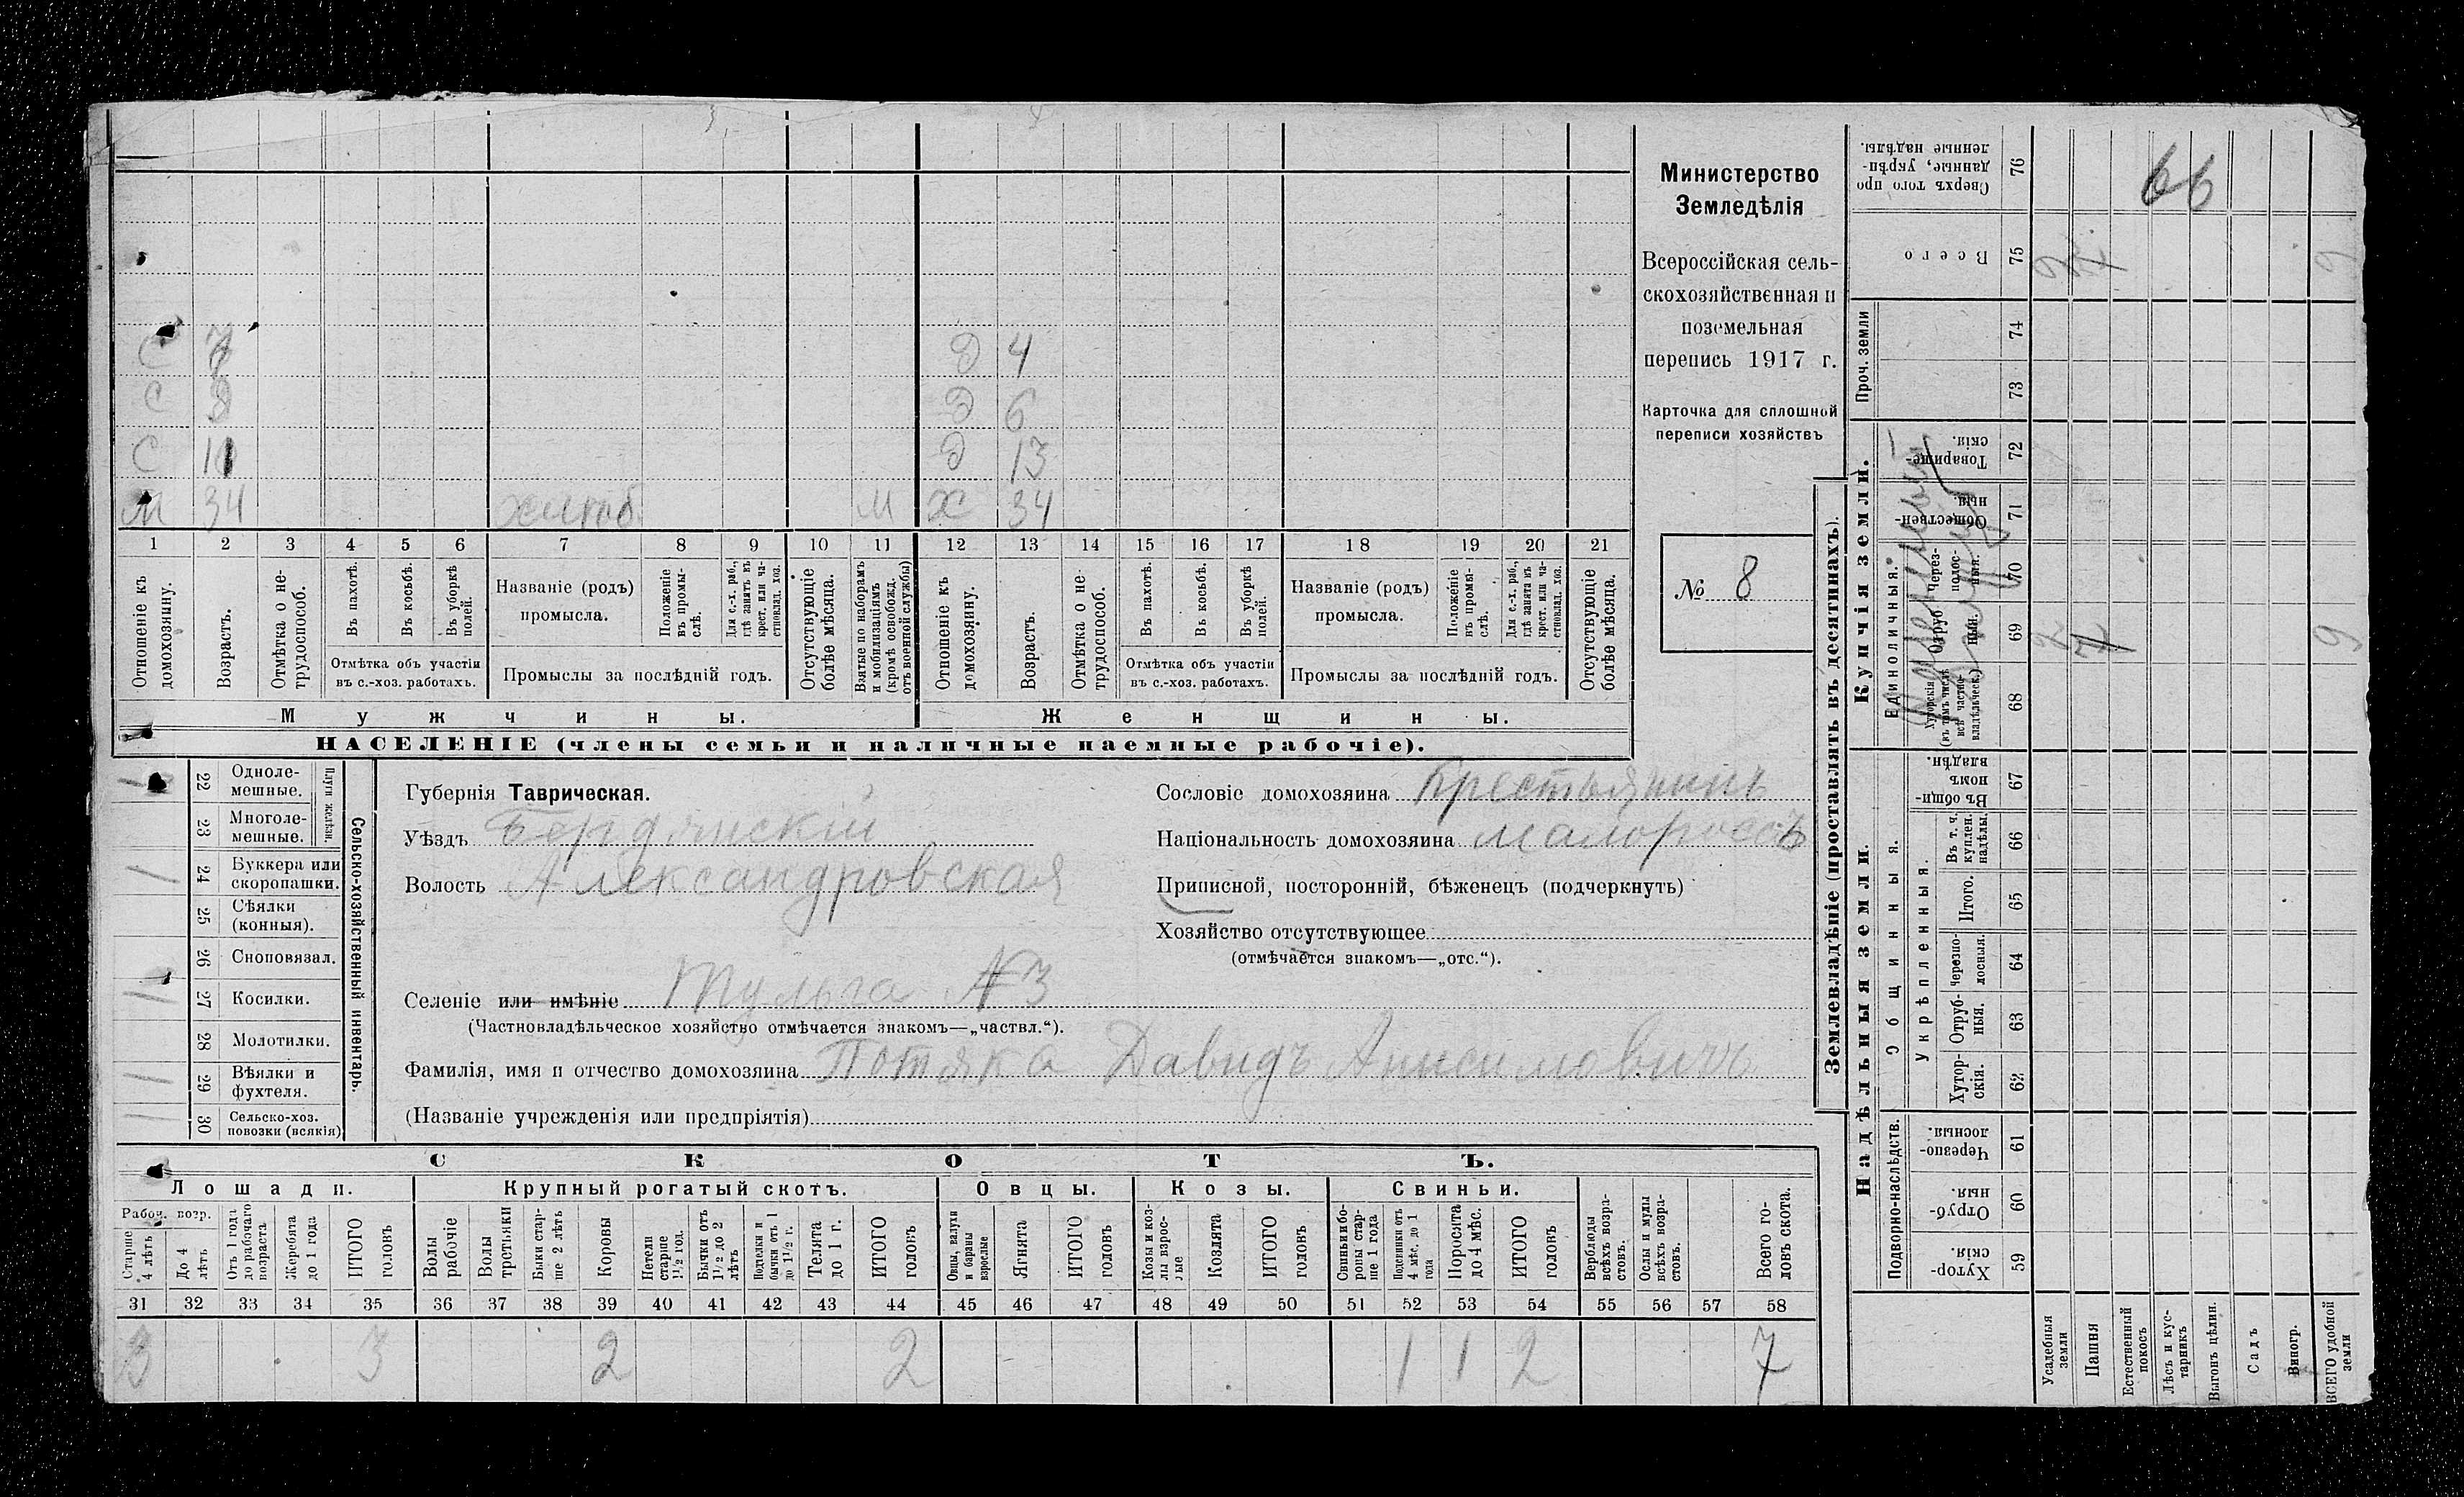 С 7 Д 4
С 8 Д 6
С 11 Д 13
34 М Х 34
1 2 3 4 5 6 7 8 9 10 11 12 13 14 15 16 17 18 19 20 21
Отношеніе къ домохозяину.
Возрастъ.
Отмѣтка о нетрудоспособ.
Въ пахотѣ.
Въ косьбѣ.
Въ уборкѣ полей.
Отмѣтка объ участіи
въ с.-хоз. работахъ.
Названіе (родъ)
промысла.
Положеніе въ промыслѣ.
Для с.-х. раб., гдѣ занятъ въ крест. или частновлад. хоз.
Промыслы за послѣдній годъ.
Отсутствующіе болѣе мѣсяца.
Взятые по наборамъ и мобилизаціямъ (кромѣ освобожд. отъ военной службы)
Отношеніе къ домохозяину.
Возрастъ.
Отмѣтка о нетрудоспособ.
Въ пахотѣ.
Въ косьбѣ.
Въ уборкѣ полей.
Отмѣтка объ участіи
въ с.-хоз. работахъ.
Названіе (родъ)
промысла.
Положеніе въ промыслѣ.
Для с.-х. раб., гдѣ занята въ крест. или частновлад. хоз.
Промыслы за послѣдній годъ.
Отсутствующіе болѣе мѣсяца.
Мужчины.
Женщины.
НАСЕЛЕНІЕ (члены семьи и наличные наемные рабочіе).
Министерство
Земледѣлія
Всероссійская сель-
скохозяйственная и
поземельная
перепись 1917 г.
Карточка для сплошной
переписи хозяйствъ
№ 8
22 Одноле-
мешные.
23 Многоле-
мешные.
Плуги желѣзн.
24 Буккера или
скоропашки.
25 Сѣялки
(конныя).
26 Сноповязал.
27 Косилки.
28 Молотилки.
29 Вѣялки и
фухтеля.
30 Сельско-хоз.
повозки (всякія)
Сельско-хозяйственный инвентарь.
Губернія Таврическая.
Уѣздъ Бердянскій
Волость Александровская
Селеніе или имѣніе Тульга №3
(Частновладѣльческое хозяйство отмѣчается знакомъ—„частвл.“).
Фамилія, имя и отчество домохозяина Потяка Давидъ Анисимовичъ
(Названіе учрежденія или предпріятія)
Сословіе домохозяина Крестьянинъ
Національность домохозяина малороссъ
Приписной, посторонній, бѣженецъ (подчеркнуть)
Хозяйство отсутствующее
(отмѣчается знакомъ—„отс.“).
СКОТЪ.
Лошади. Крупный рогатый скотъ. Овцы. Козы. Свиньи.
Рабоч. возр.
Старше 4 лѣтъ
До 4 лѣтъ
Отъ 1 года до рабочаго возраста
Жеребята до 1 года
ИТОГО головъ
Волы рабочіе
Волы третьяки
Быки старше 2 лѣтъ
Коровы
Нетели старше 1½ год.
Бычки отъ 1½ до 2 лѣтъ
Подтелки и бычки отъ 1 до 1½ г.
Телята до 1 г.
ИТОГО головъ
Овцы, валухи и бараны взрослые
Ягнята
ИТОГО головъ
Козы и козлы взрослые
Козлята
ИТОГО головъ
Свиньи и бороны старше 1 года
Подсвинки отъ 4 мѣс. до 1 года
Поросята до 4 мѣс.
ИТОГО головъ
Верблюды всѣхъ возрастовъ.
Ослы и мулы всѣхъ возрастовъ.
Всего головъ скота.
31 32 33 34 35 36 37 38 39 40 41 42 43 44 45 46 47 48 49 50 51 52 53 54 55 56 57 58
3 3 2 2 1 1 2 7
Землевладѣніе (проставлять въ десятинахъ).
Надѣльныя земли.
Купчія земли.
Проч. земли
Подворно-наслѣдств.
Общинныя.
Укрѣпленныя.
Единоличныя.
Хуторскія. 59
Отрубныя. 60
Черезполосныя. 61
Хуторскія. 62
Отрубныя. 63
Черезполосныя. 64
Итого. 65
Въ т. ч. куплен. надѣлы. 66
Въ общинномъ владѣн. 67
Хуторскія (въ томъ числѣ всѣ частновладѣльческ.) 68
Отрубныя. 69
Черезполосныя. 70
Общественныя. 71
Товарищескія. 72
73
74
Всего 75
Сверхъ того проданные, укрѣпленные надѣлы. 76
66
9
9
Усадебныя земли
Пашня
Естественный покосъ
Лѣсъ и кустарникъ
Выгонъ цѣлин.
Садъ
Виногр.
ВСЕГО удобной земли